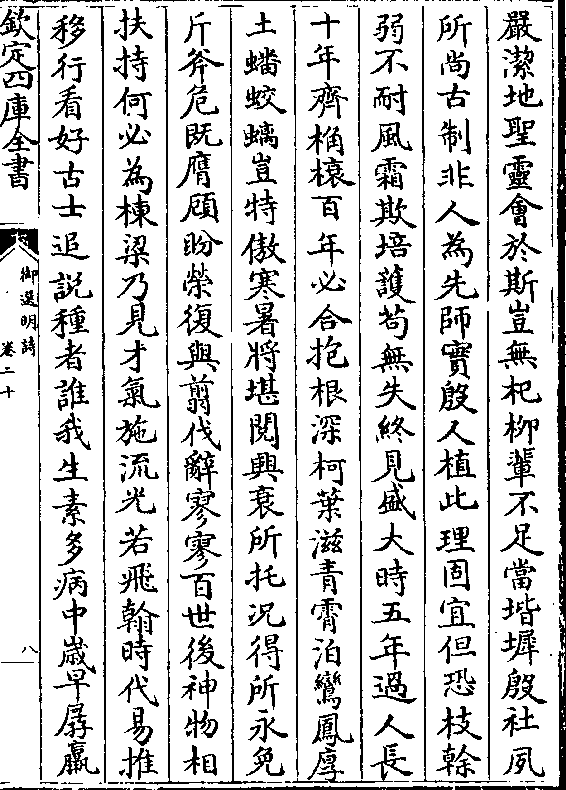 嚴潔地聖靈會於斯豈無杞柳輩不足當堦墀殷社夙
所尚古制非人為先師實殷人植此理固宜但恐枝榦
弱不耐風霜欺培護苟無失終見盛大時五年過人長
十年齊桷榱百年必合抱根深柯葉滋青霄泊鸞鳳厚
土蟠蛟螭豈特傲寒暑將堪閱興衰所托况得所永免
斤斧危既膺顧盼榮復與翦伐辭寥寥百世後神物相
扶持何必為棟梁乃見才氣施流光若飛翰時代易推
移行看好古士追說種者誰我生素多病中嵗早孱羸
欽定四庫全書
御選明詩
卷二十
八